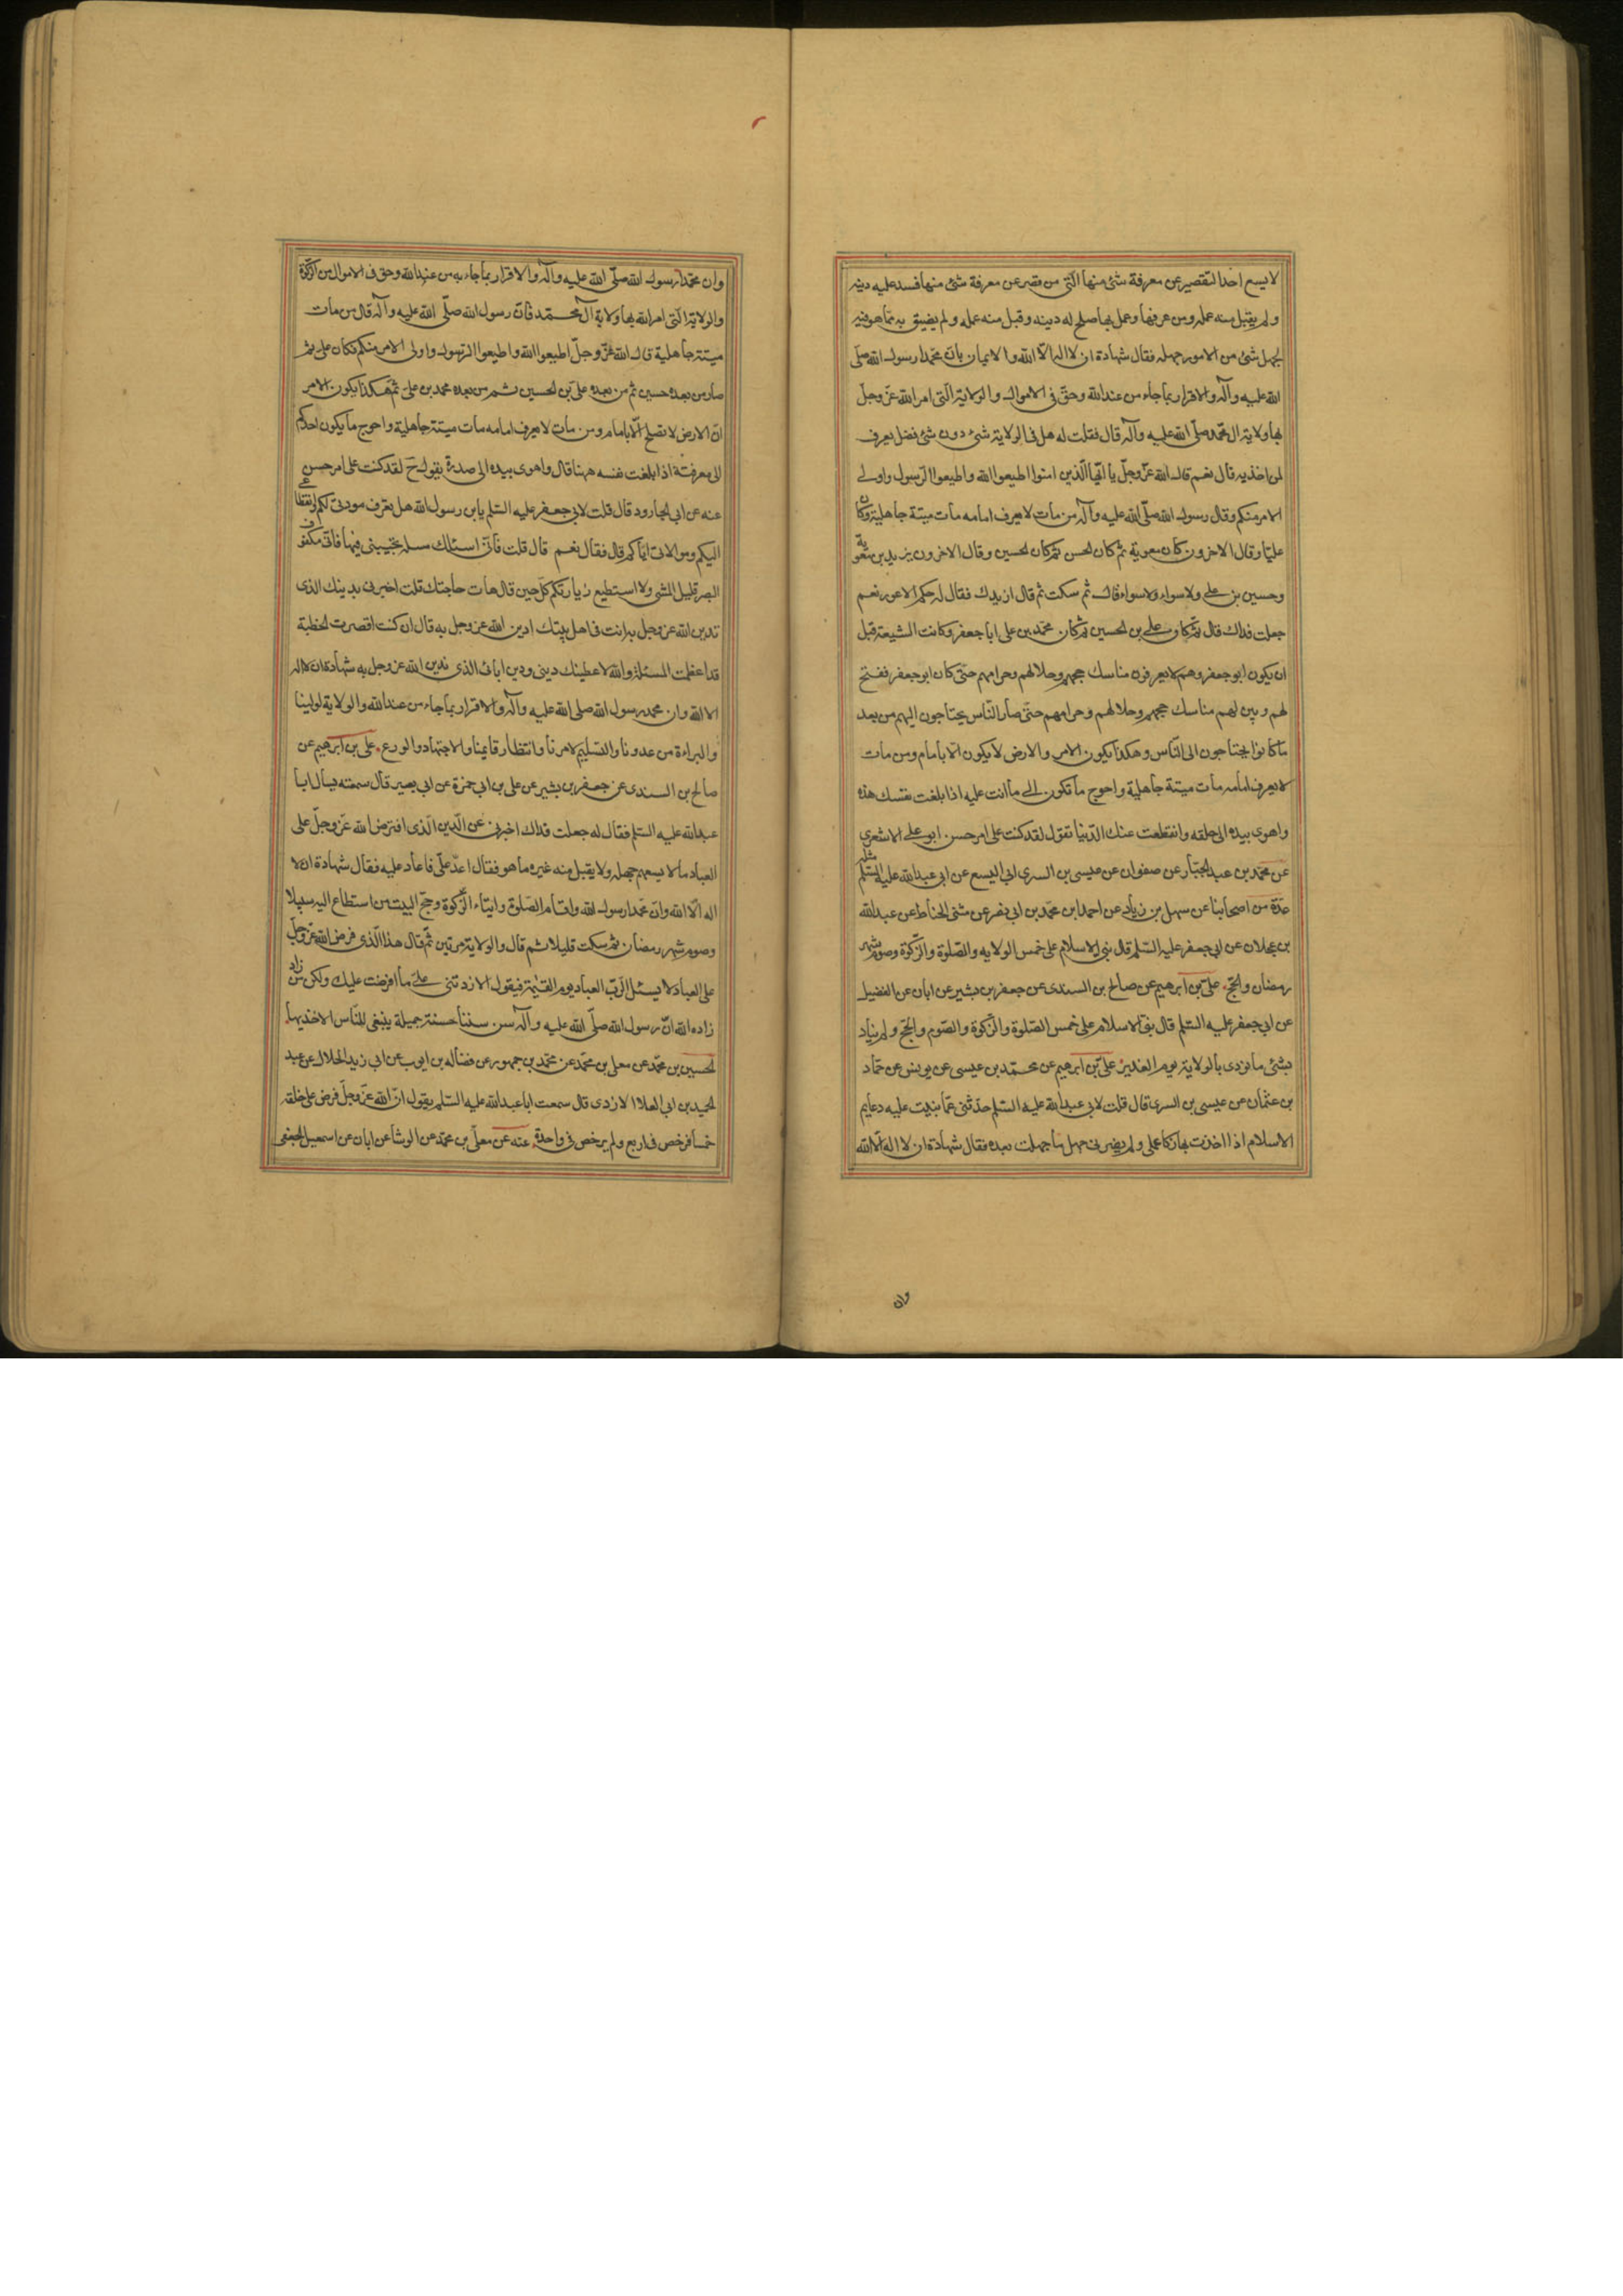 لا يسع احدا التقصير عن معرفة شئ منها الّتى من قصر عن معرفة شئ منها فسد عليه دينه
ولم يقبل منه عمله ومن عرفها وعمل بها صلح له دينه وقبل منه عمله ولم يضيق به مّما هو فيه
لجهل شئ من الامور جهله فقال شهادة ان لا اله الّا الله والايمان بانّ محمّدا رسول الله صلّى
الله عليه وآله والاقرار بما جاء من عند الله وحقّ فى الاموال والولاية الّتى امر الله عزّ وجلّ
بها ولاية ال محمّد صلّى الله عليه وآله قال فقلت له هل فى الولاية شئ دون شئ فضل يعرف
لمن اخذ به قال نعم قال الله عزّ وجلّ يا ايّها الّذين امنوا اطيعوا الله واطيعوا الرّسول واولى
الامر منكم وقال رسول الله صلّى الله عليه وآله من مات لا يعرف امامه مات ميتة جاهلية وكان
عليّا وقال الاخرون كان معوية ثم كان الحسن ثم كان الحسين وقال الاخرون يزيد بن معوية
وحسين بن على ولا سواء ولا سواء قال ثم سكت ثم قال ازيدك فقال له حكم الاعور نعم
جعلت فداك قال ثم كان على بن الحسين ثم كان محمّد بن على ابا جعفر وكانت الشيعة قبل
ان يكون ابو جعفر وهم لا يعرفون مناسك حجهم وحلالهم وحرامهم حتّى كان ابو جعفر ففتح
لهم وبين لهم مناسك حجهم وحلالهم وحرامهم حتّى صار النّاس يحتاجون اليهم من بعد
ما كانوا يحتاجون الى النّاس وهكذا يكون الامر والارض لا يكون الّا بامام ومن مات
لا يعرف امامه مات ميتة جاهلية واحوج ما تكون الى ما انت عليه اذا بلغت نفسك هذه
واهوى بيده الى حلقه وانقطعت عنك الدّنيا تقول لقد كنت على امر حسن ابو على الاشعرى
عن محمّد بن عبد الجبّار عن صفوان عن عيسى بن السرى ابى اليسع عن ابى عبد الله عليه السّلم مثله
عدّة من اصحابنا عن سهل بن زياد عن احمد بن محمّد بن ابى نصر عن مثنى الحناط عن عبد الله
بن عجلان عن ابى جعفر عليه السّلم قال بنى الاسلام على خمس الولايه والصّلوة والزّكوة وصوم شهر
رمضان والحجّ علىّ بن ابرهيم عن صالح بن السندى عن جعفر بن بشير عن ابان عن الفضيل
عن ابى جعفر عليه السّلم قال بنى الاسلام على خمس الصّلوة والزّكوة والصّوم والحجّ ولم يناد
بشئ ما نودى بالولاية يوم الغدير علىّ بن ابرهيم عن محمّد بن عيسى عن يونس عن حمّاد
بن عثمان عن عيسى بن السرى قال قلت لابى عبد الله عليه السّلم حدّثنى عمّا بنيت عليه دعايم
الاسلام اذا اخذت بها زكا عملى ولم يضرنى جهل ما جهلت بعده فقال شهادة ان لا اله الّا الله
وان
وان محمّدا رسول الله صلّى الله عليه وآله والاقرار بما جاء به من عند الله وحق فى الاموال من الزّكوة
والولاية الّتى امر الله بها ولاية آل محمّد فانّ رسول الله صلّى الله عليه وآله قال من مات
ميتة جاهلية قال الله عزّ وجلّ اطيعوا الله واطيعوا الرّسول واولى الامر منكم فكان على ثم
صار من بعده حسين ثم من بعده علىّ بن الحسين ثم من بعده محمد بن على ثمّ هكذا يكون الامر
انّ الارض لا تصلح الّا بامام ومن مات لا يعرف امامه مات ميتة جاهلية واحوج ما يكون احدكم
الى معرفته اذا بلغت نفسه ههنا قال واهوى بيده الى صدره يقول ح لقد كنت على امر حسن
عنه عن ابى الجارود قال قلت لابى جعفر عليه السّلم يا بن رسول الله هل تعرف مودتى لكم وانقطاعى
اليكم وموالاتى ايّاكم قال فقال نعم قال قلت فانّى اسئلك مسئلة تجيبنى فيها فانّى مكفوف
البصر قليل المشى ولا استطيع زيارتكم كلّ حين قال هات حاجتك قلت اخبرنى بدينك الذى
تدين الله عز وجل به انت واهل بيتك ادين الله عز وجل به قال ان كنت اقصرت الخطبة
قد اعظمت المسئلة والله لاعطينك دينى ودين ابائى الذى ندين الله عز وجل به شهادة ان لا اله
الا الله وان محمد رسول الله صلى الله عليه وآله والاقرار بما جاء من عند الله والولاية لولينا
والبراءة من عدونا والتسليم لامرنا وانتظار قايمنا والاجتهاد والورع على بن ابرهيم عن
صالح بن السندى عن جعفر بن بشير عن على بن ابى حمزة عن ابى بصير قال سمعته يسال ابا
عبد الله عليه السّلم فقال له جعلت فداك اخبرنى عن الدّين الّذى افترض الله عزّ وجلّ على
العباد ما لا يسعهم جهله ولا يقبل منه غيره ما هو فقال اعد علّى فاعاد عليه فقال شهادة ان لا
اله الّا الله وانّ محمّدا رسول الله واقام الصّلوة وايتاء الزّكوة وحجّ البيت من استطاع اليه سبيلا
وصوم شهر رمضان ثم سكت قليلا ثم قال والولاية مرّتين ثمّ قال هذا الّذى فرض الله عزّ وجلّ
على العباد لا يسئل الرّب العباد يوم القيمة فيقول الا زدتنى على ما افرضت عليك ولكن من زاد
زاده الله انّ رسول الله صلّى الله عليه وآله سن سننا حسنة جميلة ينبغى للنّاس الاخذ بها
الحسين بن محمّد عن معلى بن محمّد عن محمّد بن جمهور عن فضاله بن ايوب عن ابى زيد الحلال عن عبد
الحميد بن ابى العلا الازدى قال سمعت ابا عبد الله عليه السّلم يقول انّ الله عزّ وجلّ فرض على خلقه
خمسا فرخص فى اربع ولم يرخص فى واحدة عنه عن معلّى بن محمّد عن الوشا عن ابان عن اسمعيل الجعفى